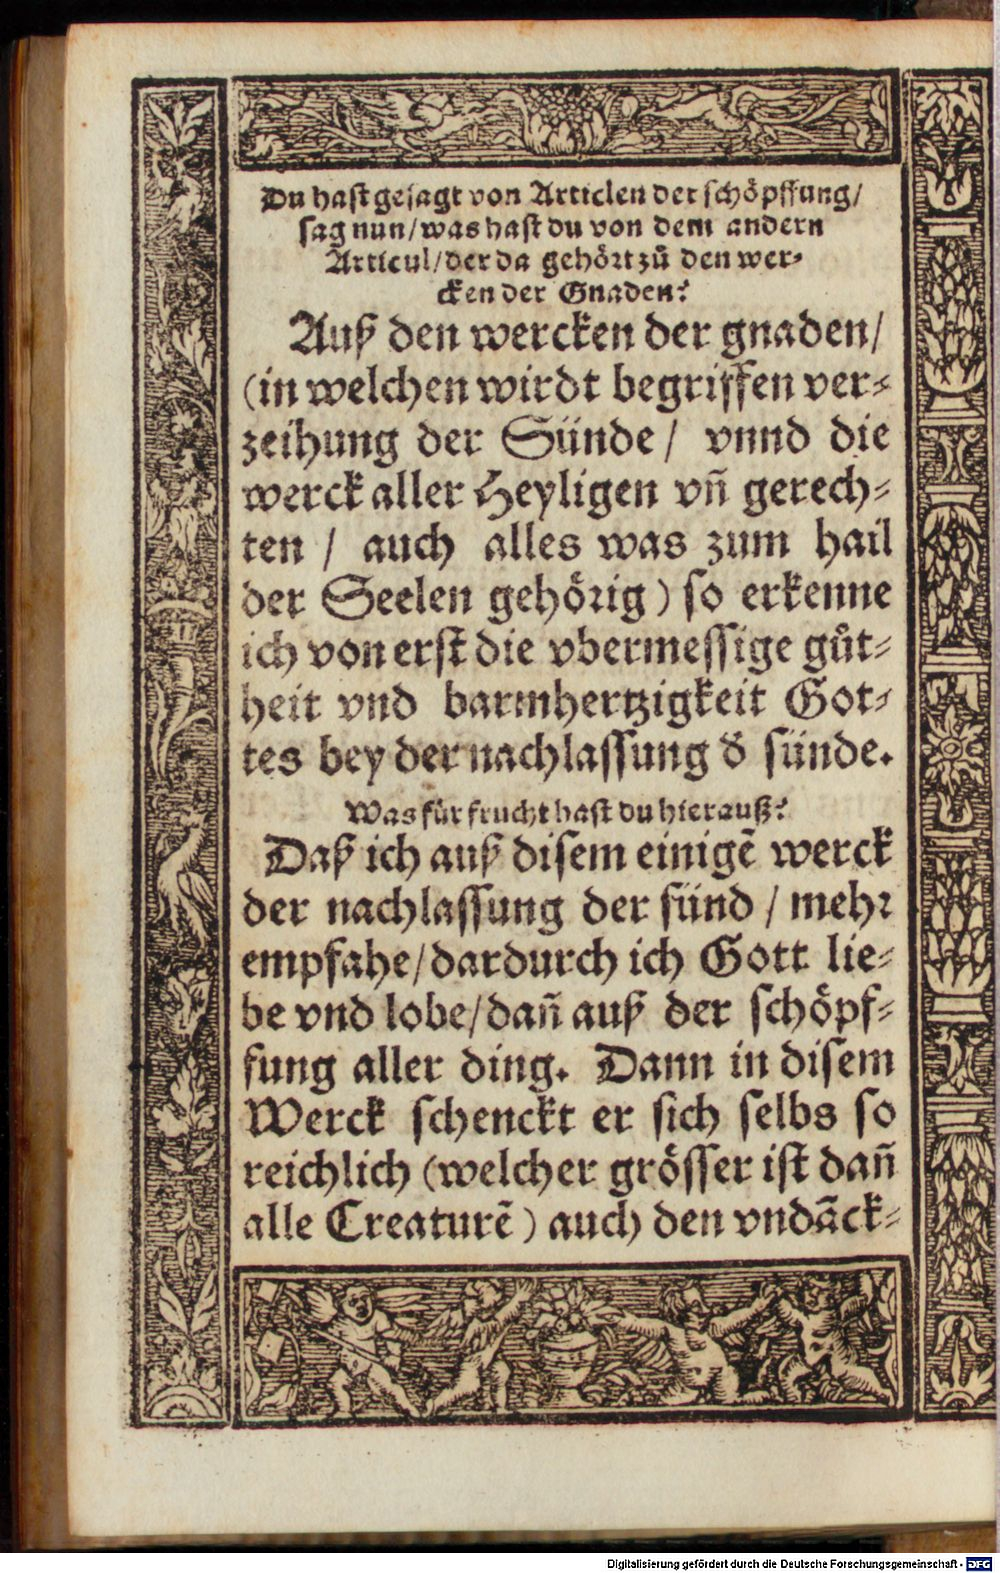 Du hast gesagt von Articlen der schöpffung/
sag nun/was hast du von dem andern
Articul/der da gehört zů den wer-
cken der Gnaden?
Auß den wercken der gnaden/
(in welchen wirdt begriffen ver-
zeihung der Sünde/ vnnd die
werck aller Heyligen vñ gerech-
ten / auch alles was zum hail
der Seelen gehörig) so erkenne
ich von erst die vbermessige gůt-
heit vnd barmhertzigkeit Got-
tes bey der nachlassung d̕ sünde.
Was für frucht hast du hierauß?
Daß ich auß disem einigẽ werck
der nachlassung der sünd / mehr
empfahe/dardurch ich Gott lie-
be vnd lobe/dañ auß der schöpf-
fung aller ding. Dann in disem
Werck schenckt er sich selbs so
reichlich (welcher grösser ist dañ
alle Creaturẽ) auch den vndãck-
Digitalisierung gefördert durch die Deutsche Forschungsgemeinschaft - DFG